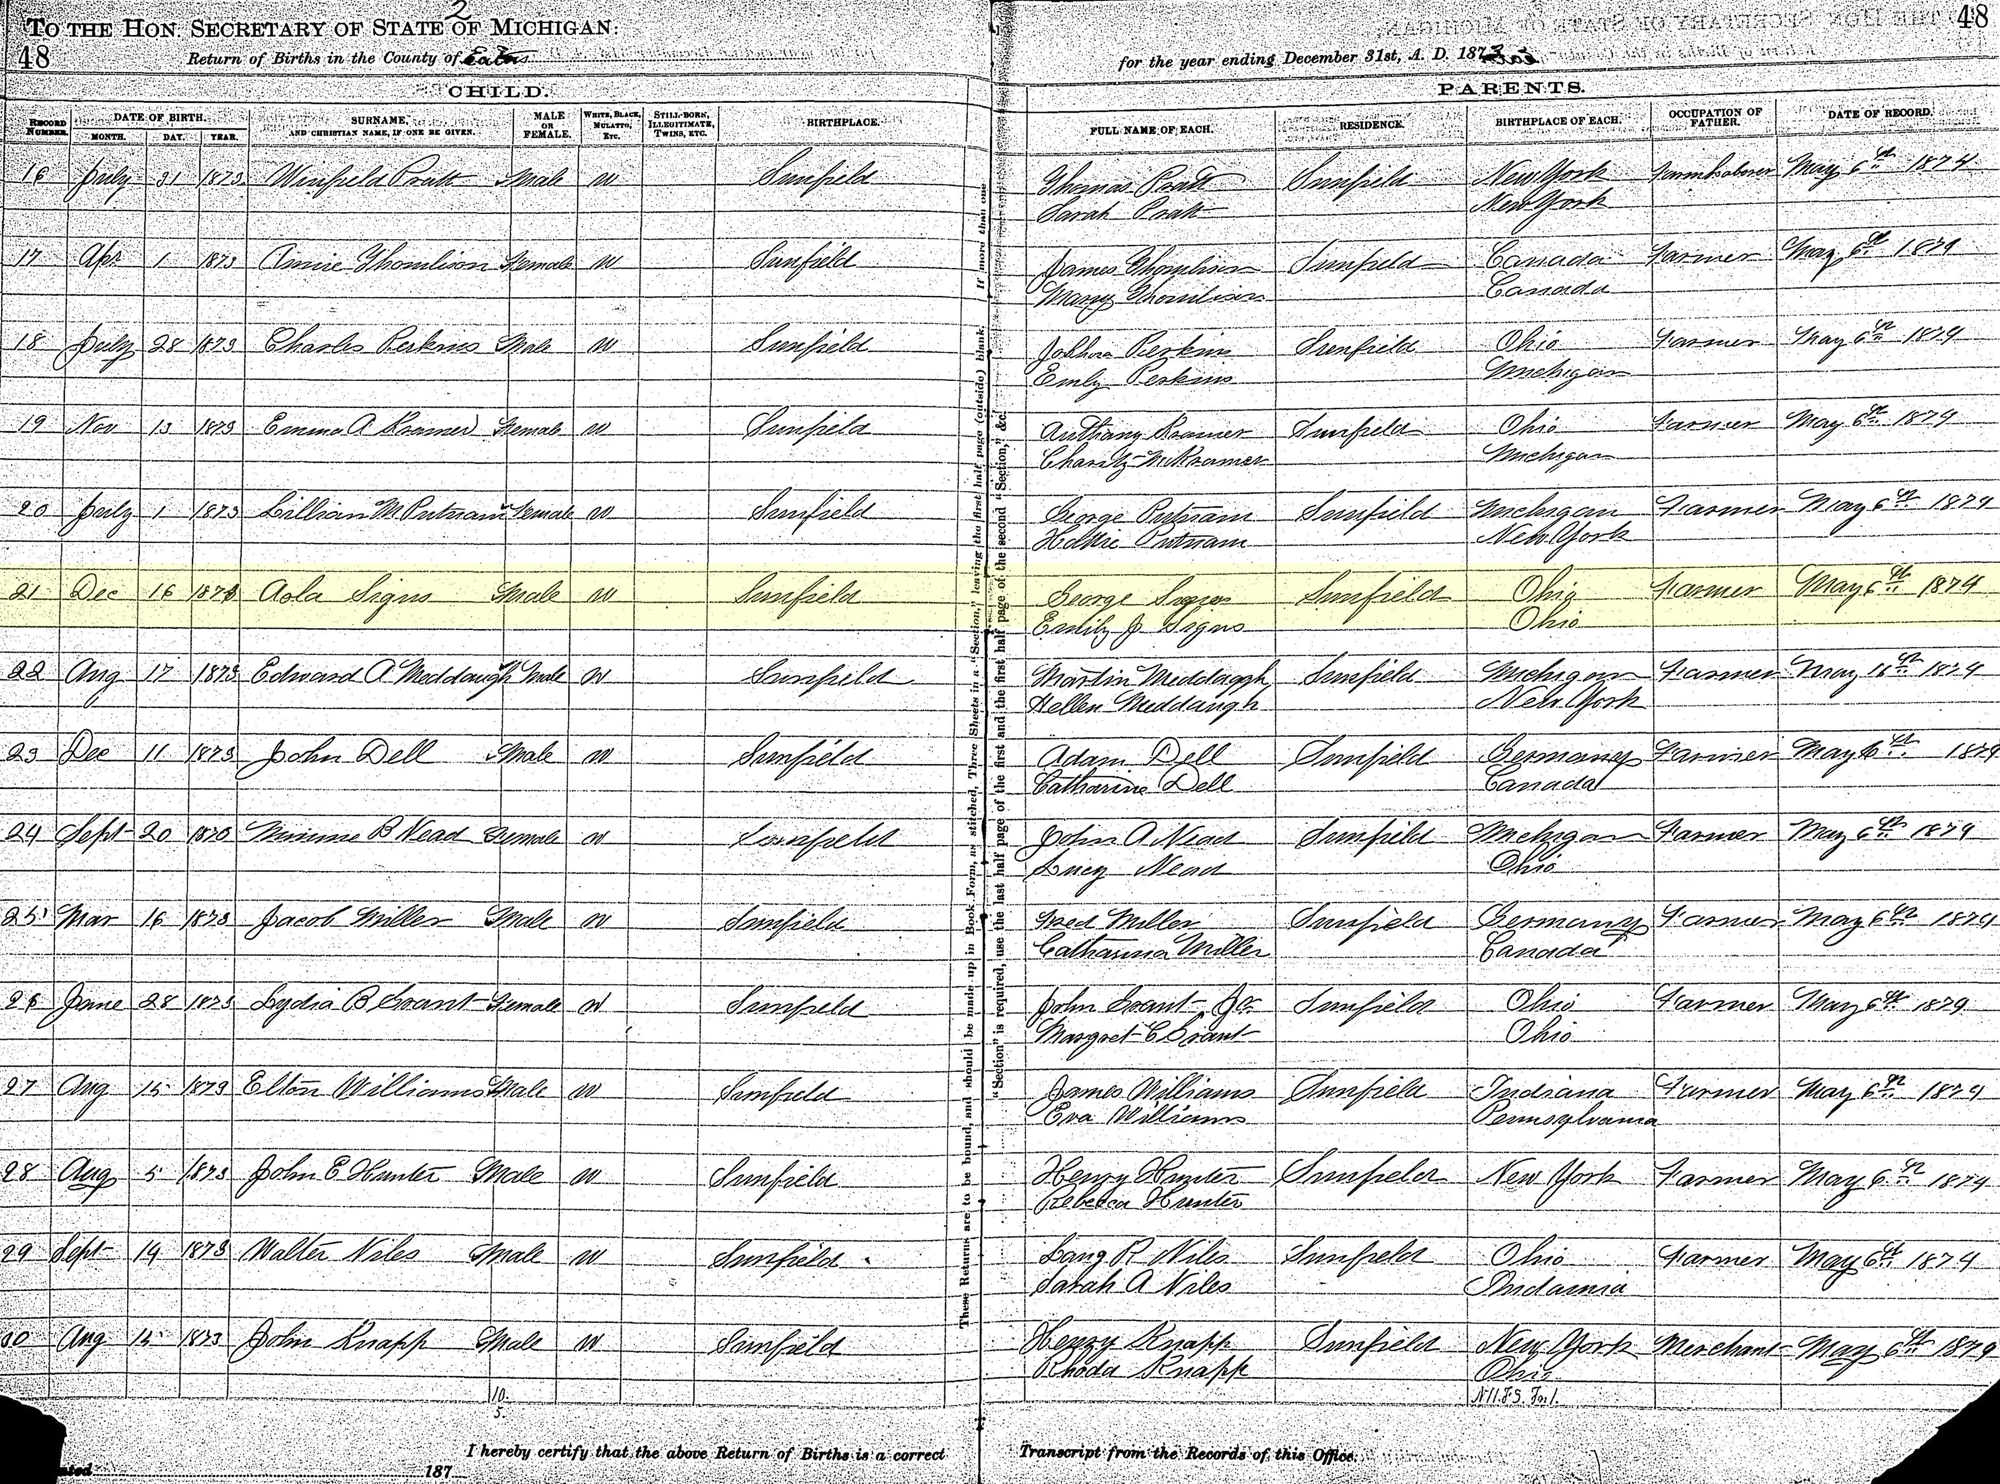 2
TO THE HON. SECRETARY OF STATE OF MICHIGAN:
48
48
Return of Births in the County of Eaton
for the year ending December 31st, A. D. 1873
CHILD.
PARENTS.
RECORD NUMBER. DATE OF BIRTH. MONTH. DAY. YEAR. SURNAME, AND CHRISTIAN NAME, IF ONE BE GIVEN. MALE OR FEMALE. WHITE, BLACK, MULATTO, ETC. STILL-BORN, ILLEGITIMATE, TWINS, ETC. BIRTHPLACE. FULL NAME OF EACH. RESIDENCE. BIRTHPLACE OF EACH. OCCUPATION OF FATHER. DATE OF RECORD.
16 July 31 1873 Winfield Pratt Male W Sunfield Thomas Pratt Sunfield New York Farm Laborer May 6th 1874
Sarah Pratt New York
17 Apr 1 1873 Annie Thomlison Female W Sunfield James Thomlison Sunfield Canada Farmer May 6th 1874
Mary Thomlison Canada
18 July 28 1873 Charles Perkins Male W Sunfield Perkins Sunfield Ohio Farmer May 6th 1874
Emly Perkins Michigan
19 Nov 13 1873 Emma A Kramer Female W Sunfield Anthany Kramer Sunfield Ohio Farmer May 6th 1874
Charity M Kramer Michigan
20 July 1 1873 Lillian M Putnam Female W Sunfield George Putnam Sunfield Michigan Farmer May 6th 1874
Hattie Putnam New York
21 Dec 16 1873 Aola Signs Male W Sunfield George Signs Sunfield Ohio Farmer May 6th 1874
Emily J Signs Ohio
22 Aug 17 1873 Edward A Meddaugh Male W Sunfield Martin Meddaugh Sunfield Michigan Farmer May 16th 1874
Hellen Meddaugh New York
23 Dec 11 1873 John Dell Male W Sunfield Adam Dell Sunfield Germany Farmer May 6th 1874
Catharine Dell Canada
24 Sept 20 1873 Minnie B Nead Female W Sunfield John A Nead Sunfield Michigan Farmer May 6th 1874
Lucy Nead Ohio
25 Mar 16 1873 Jacob Miller Male W Sunfield Fred Miller Sunfield Germany Farmer May 6th 1874
Catharina Miller Canada
26 June 28 1873 Lydia B Grant Female W Sunfield John Grant Jr Sunfield Ohio Farmer May 6th 1874
Margret C Grant Ohio
27 Aug 15 1873 Elton Williams Male W Sunfield James Williams Sunfield Indiana Farmer May 6th 1874
Eva Williams Pennsylvania
28 Aug 5 1873 John E Hunter Male W Sunfield Henry Hunter Sunfield New York Farmer May 6th 1874
Rebecca Hunter
29 Sept 14 1873 Walter Niles Male W Sunfield Lang R Niles Sunfield Ohio Farmer May 6th 1874
Sarah A Niles Indiania
30 Aug 15 1873 John Knapp Male W Sunfield Henry Knapp Sunfield New York Merchant May 6th 1874
Rhoda Knapp Ohio
10.
5.
I hereby certify that the above Return of Births is a correct Transcript from the Records of this Office.
187
These Returns are to be bound, and should be made up in Book Form, as stitched, Three Sheets in a "Section," leaving the first half page (outside) blank. If more than one
"Section" is required, use the last half page of the first and the first half page of the second "Section," &c.